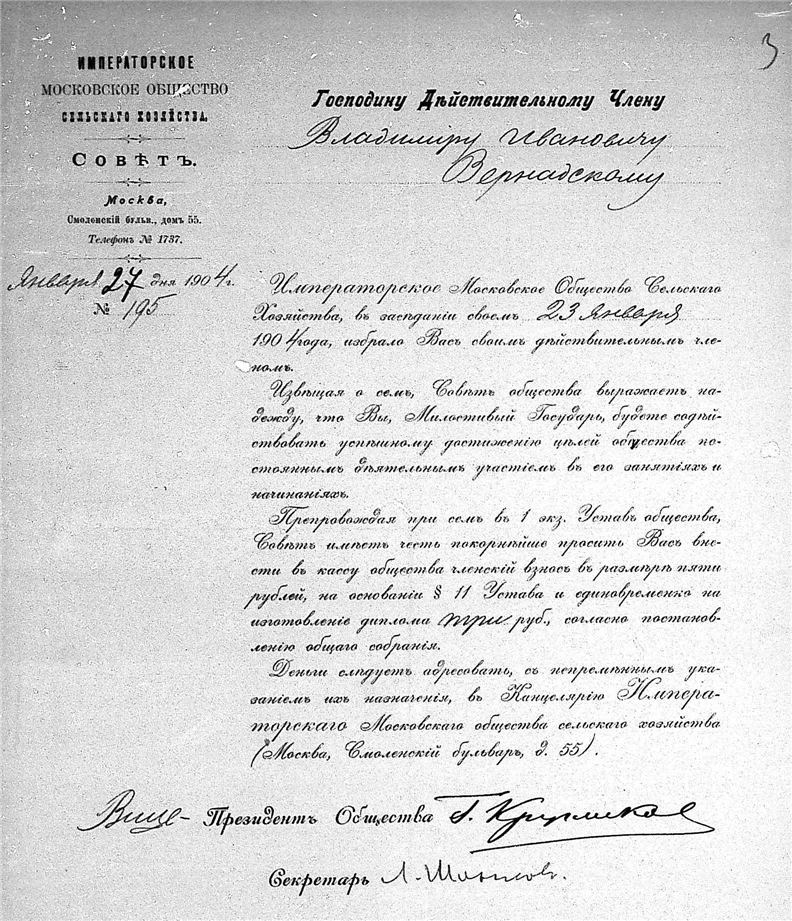 3
ИМПЕРАТОРСКОЕ
МОСКОВСКОЕ ОБЩЕСТВО
СЕЛЬСКАГО ХОЗЯЙСТВА.
СОВѢТЪ.
Москва,
Смоленскій бульв., домъ 55.
Телефонъ № 1737.
Января 27 дня 1904 г.
№ 195
Господину Дѣйствительному Члену
Владиміру Ивановичу
Вернадскому
Императорское Московское Общество Сельскаго
Хозяйства, въ засѣданіи своемъ 23 Января
1904 года, избрало Васъ своимъ дѣйствительнымъ чле-
номъ.
Извѣщая о семъ, Совѣтъ общества выражаетъ на-
дежду, что Вы, Милостивый Государь, будете содѣй-
ствовать успѣшному достиженію цѣлей общества по-
стояннымъ дѣятельнымъ участіемъ въ его занятіяхъ и
начинаніяхъ.
Препровождая при семъ въ 1 экз. Уставъ общества,
Совѣтъ имѣетъ честь покорнѣйше просить Васъ вне-
сти въ кассу общества членскій взносъ въ размѣрѣ пяти
рублей, на основаніи § 11 Устава и единовременно на
изготовленіе диплома три руб., согласно постанов-
ленію общаго собранія.
Деньги слѣдуетъ адресовать, съ непремѣннымъ ука-
заніемъ ихъ назначенія, въ Канцелярію Импера-
торскаго Московскаго общества сельскаго хозяйства
(Москва, Смоленскій бульваръ, д. 55).
Вице- Президентъ Общества Г.
Секретарь Л.